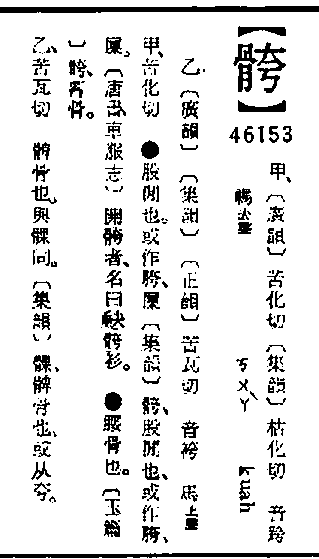 【骻】
46153
甲、〔廣韻〕苦化切 〔集韻〕枯化切 音跨
禡去聲 ㄎㄨㄚˋ kuah
乙、〔廣韻〕〔集韻〕〔正韻〕苦瓦切 音袴 馬上聲
甲、苦化切 ●股閒也。或作胯、䯞〔集韻〕骻、股閒也、或作胯、
䯞。〔唐書車服志〕開骻者、名曰缺骻衫。●腰骨也。〔玉篇
〕骻、骨。
乙、苦瓦切 髀骨也、與髁同。〔集韻〕髁、髀骨也、或从夸。